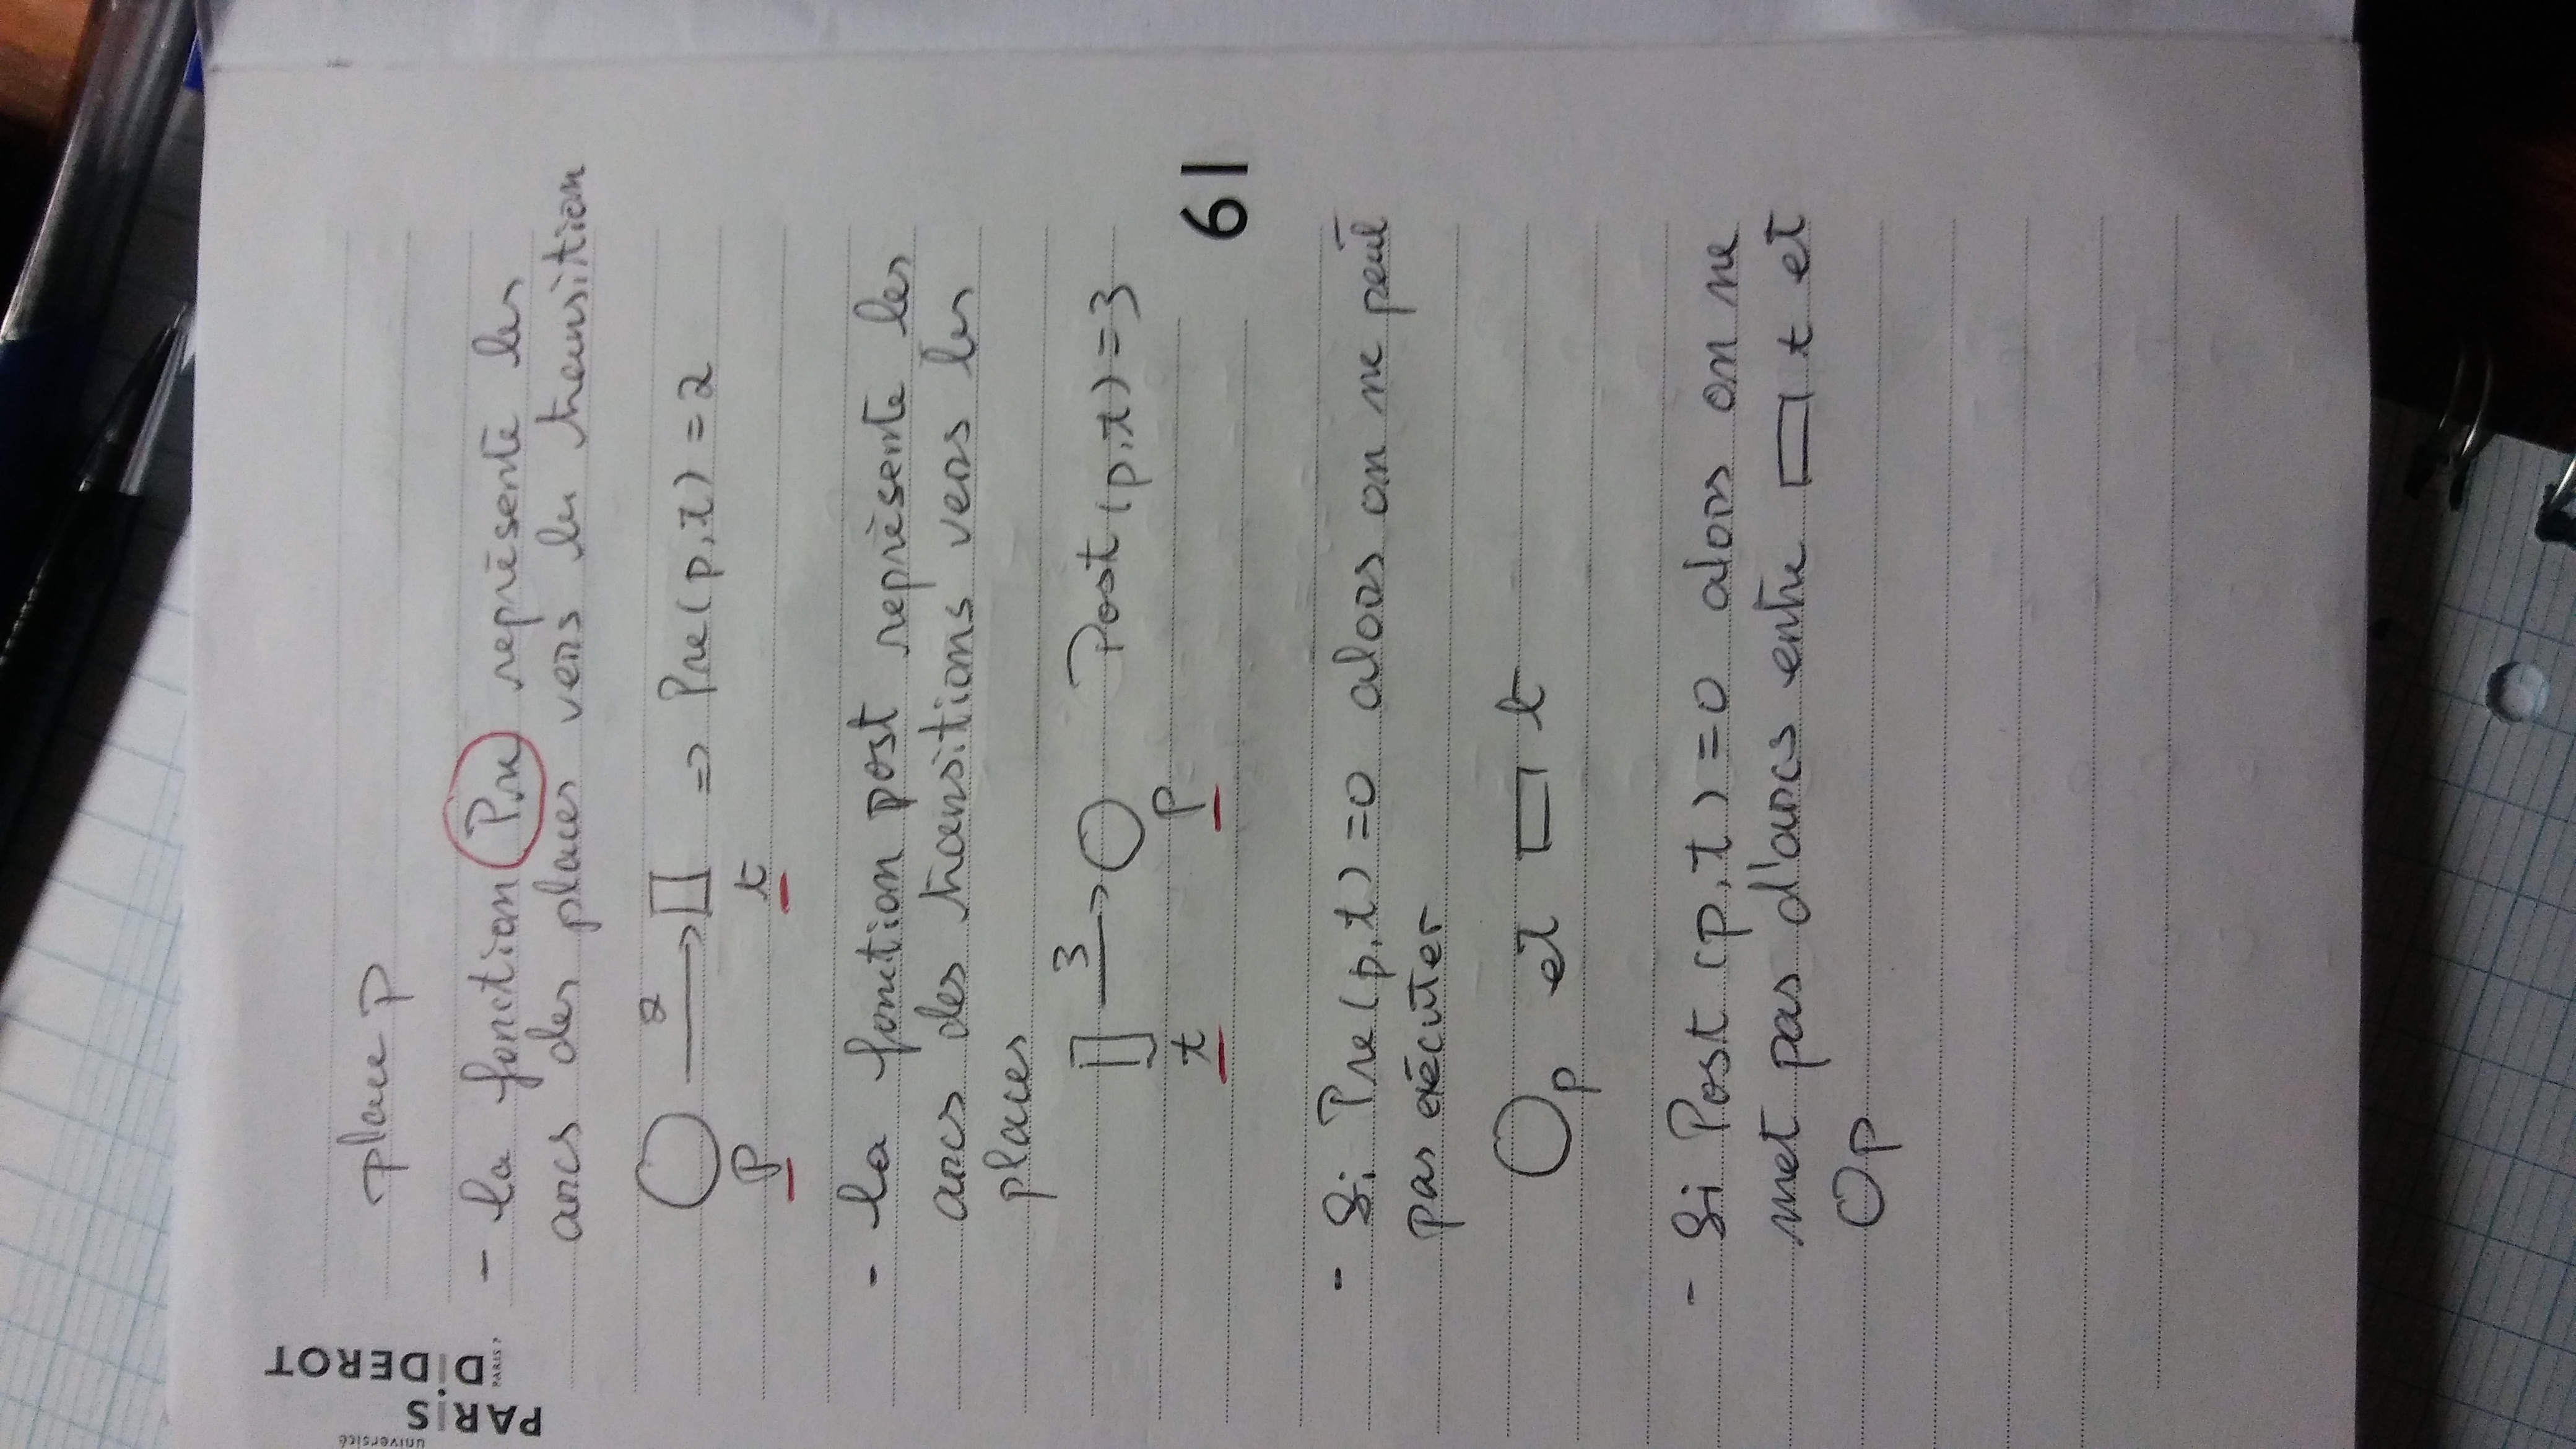 université
PARIS
DIDEROT
PARIS 7
place p
- la fonction Pre représente les
arcs des places vers les transition
2
=> Pre(p,t) = 2
p t
- la fonction post représente les
arcs des transitions vers les
places
3
Post(p,t) = 3
t p
61
- Si Pre(p,t) = 0 alors on ne peut
pas exécuter
p et t
- Si Post (p,t) = 0 alors on ne
met pas d'arcs entre t et
p